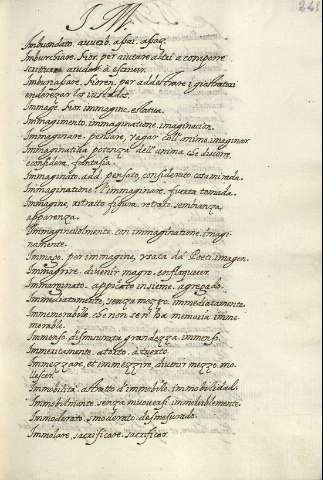 I M.
241
Imbuondato, avverb. assai. assaz.
Imburchiare, fior. per aiutare altri a comporre
scrittura. ayudar à escriuir.
Imburiassare, fioren. per addestrare i giostratori
enderezar los justadores.
Immage, fior. immagine, estatua.
Immagimento, immaginatione, imaginacion.
Immaginare, pensare, pagar coll'animo, imaginar
Immaginatiua potenza dell'anima che discorre,
considera, fantasia.
Immaginato, add. pensato, considerato. cosa mirada.
Immaginatione l'immaginare,
Immagine, ritratto, figura, retrato, sembianza,
apparenza.
Immagineuolmente, con immaginatione. imagi-
nariamente.
Immago, per immagine, usata da Poeti. imagen.
Immagrire, diuenir magro, enflaquecer.
Immarginato, appicato insieme, agregado.
Immediatamente, senza mezzo. immediatamente.
Immemorabile, che non se n'ha memoria. imme-
morable.
Immenso, dismisurata grandezza, immenso.
Immeritamente, a torto, à tuerto.
Immezzare, et immezzire, diuenir mezzo, mo-
llecer.
Immobilità, astratto d'immobile, immobilidad.
Immobilmente, senza muouersi, immobilemente.
Immoderato, smoderato, desmesurado.
Immolare, sacrificare. sacrificar.